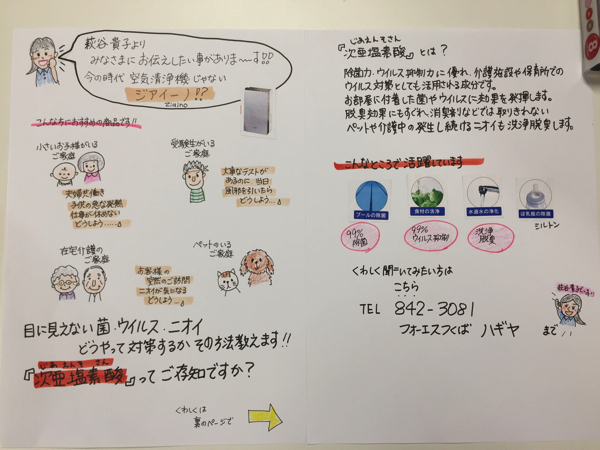 萩谷貴子より
みなさまにお伝えしたい事がありま〜す!!
今の時代 空気清浄機じゃない
ジアイーノ!?
ziaino
こんな方におすすめの商品です!!
小さいお子様がいる
ご家庭
夫婦共働き
子供の急な発熱
仕事が休めない
どうしよう....
受験生がいる
ご家庭
大事なテストが
あるのに 当日
風邪を引いたら
どうしよう...
在宅介護の
ご家庭
お客様の
突然のご訪問
ニオイが気になる
どうしよう...
ペットのいる
ご家庭
目に見えない菌・ウイルス・ニオイ
どうやって対策するか その方法教えます!!
じあえんそさん
『次亜塩素酸』ってご存知ですか?
くわしくは
裏のページで
じあえんそさん
『次亜塩素酸』とは?
除菌力・ウイルス抑制力に優れ、介護施設や保育所での
ウイルス対策としても活用される成分です。
お部屋に付着した菌やウイルスに効果を発揮します。
脱臭効果にもすぐれ、消臭剤などでは取りきれない
ペットや介護中の発生し続けるニオイも洗浄脱臭します。
こんなところで活躍しています
プールの除菌
食材の洗浄
水道水の浄化
ほ乳瓶の除菌
ミルトン
99%
除菌
99%
ウイルス抑制
洗浄
脱臭
くわしく聞いてみたい方は
こちら
TEL 842-3081
フォーエスつくば ハギヤ まで